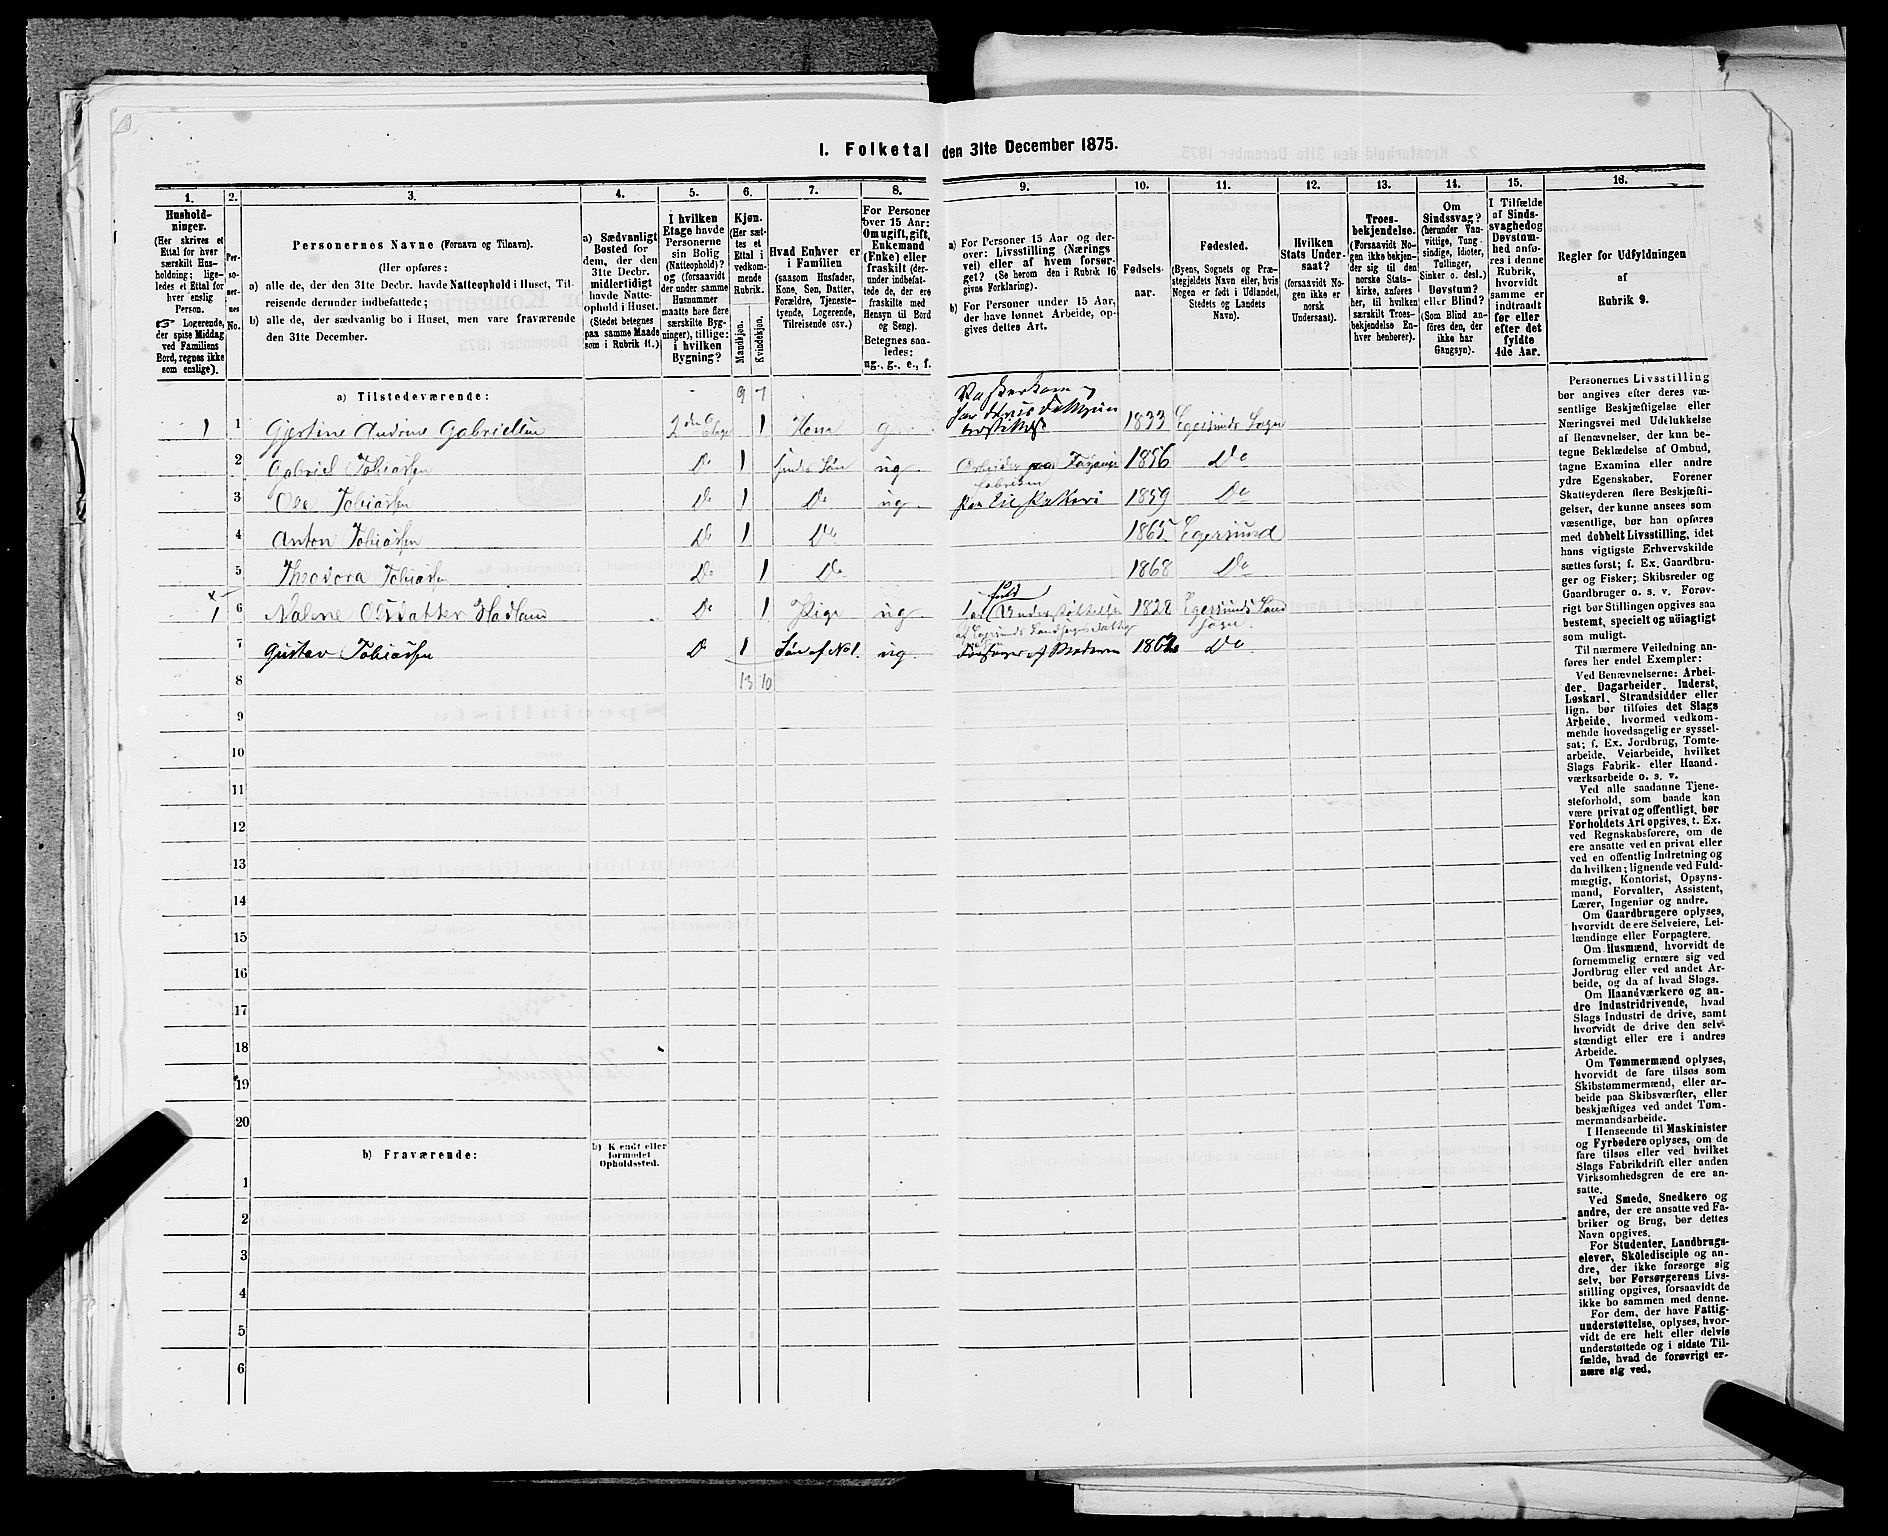 I. Folketal den 31te December 1875.
1. 2. 3. 4. 5. 6. 7. 8. 9. 10. 11. 12. 13. 14. 15. 16.
Hushold-
ninger.
(Her skrives et
Ettal for hver
særskilt Hus-
holdning; lige-
ledes et Ettal for
hver enslig
Person.
Logerende,
der spise Middag
ved Familiens
Bord, regnes ikke
som enslige).
Per-
so-
ner-
nes
No.
Personernes Navne (Fornavn og Tilnavn).
(Her opføres:
a) alle de, der den 31te Decbr. havde Natteophold i Huset, Til-
reisende derunder indbefattede;
b) alle de, der sædvanlig bo i Huset, men vare fraværende
den 31te December.
a) Sædvanligt
Bosted for
dem, der den
31te Decbr.
midlertidigt
havde Natte-
ophold i Huset.
(Stedet betegnes
paa samme Maade
som i Rubrik 11.)
I hvilken
Etage havde
Personerne
sin Bolig
(Natteophold)?
og (forsaavidt
der under samme
Husnummer
maatte høre flere
særskilte Byg-
ninger), tillige:
i hvilken
Bygning?
Kjøn.
(Her sæt-
tes et
Ettal i
vedkom-
mende
Rubrik.
Mandkjøn.
Kvindekjøn.
Hvad Enhver er
i Familien
(saasom Husfader,
Kone, Søn, Datter,
Forældre, Tjeneste-
tyende, Logerende,
Tilreisende osv.)
For Personer
over 15 Aar:
Om ugift, gift,
Enkemand
(Enke) eller
fraskilt (der-
under indbefat-
tede de, der ere
fraskilte med
Hensyn til Bord
og Seng).
Betegnes saa-
ledes:
ug., g., e., f.
a) For Personer 15 Aar og der-
over: Livsstilling (Nærings
vei) eller af hvem forsør-
get? (Se herom den i Rubrik 16
givne Forklaring).
b) For Personer under 15 Aar,
der have lønnet Arbeide, op-
gives dettes Art.
Fødsels-
aar.
Fødested.
(Byens, Sognets og Præ-
stegjeldets Navn eller, hvis
Nogen er født i Udlandet,
Stedets og Landets
Navn).
Hvilken
Stats Under-
saat?
(forsaavidt No-
gen ikke er
norsk
Undersaat).
Troes-
bekjendelse.
(Forsaavidt No-
gen ikke bekjen-
der sig til den
norske Stats-
kirke, anføres
her, til hvilken
særskilt Troes-
bekjendelse En-
hver henhører).
Om
Sindssvag?
(herunder Van-
vittige, Tung-
sindige, Idioter,
Tullinger,
Sinker o. desl.)
Døvstum?
eller Blind?
(Som Blind an-
føres den, der
ikke har
Gangsyn).
I Tilfælde
af Sinds-
svaghed og
Døvstum-
hed anfø-
res i denne
Rubrik,
hvorvidt
samme er
indtraadt
før eller
efter det
fyldte
4de Aar.
Regler for Udfyldningen
af
Rubrik 9.
a) Tilstedeværende: 9 7
1 1 Gjertine Andrine Gabrielsen 2den Etage 1 Kona g 1833 Egersunds Sogn
2 Gabriel Tobiassen Do 1 Søn ug Arbeider paa Fajance fabriken 1856 Do
3 Ole Tobiassen Do 1 Do ug paa Et Potteri 1859 Do
4 Anton Tobiassen Do 1 Do 1865 Egersund
5 Theodora Tobiassen Do 1 Do 1868 Do
1 6 Malene Olsdatter Hadland Do 1 Pige ug fuld Understøttelse af Egersunds Landsogns 1828 Egersunds Land Sogn.
7 Gustav Tobiassen Do 1 Søn af No 1. ug. Forsørges af Moderen 1862 Do
8 13 10
9
10
11
12
13
14
15
16
17
18
19
20
b) Fraværende:
b) Kjendt eller
formodet
Opholdssted.
1
2
3
4
5
6
Personernes Livsstilling
bør angives efter deres væ-
sentlige Beskjæftigelse eller
Næringsvei med Udelukkelse
af Benævnelser, der kun be-
tegne Beklædelse af Ombud,
tagne Examina eller andre
ydre Egenskaber. Forener
Skatteyderen flere Beskjæfti-
gelser, der kunne ansees som
væsentlige, bør han opføres
med dobbelt Livsstilling, idet
hans vigtigste Erhvervskilde
sættes først; f. Ex. Gaardbru-
ger og Fisker; Skibsreder og
Gaardbruger o. s. v. Forøv-
rigt bør Stillingen opgives saa
bestemt, specielt og nöiagtigt
som muligt.
Til nærmere Veiledning an-
føres her endel Exempler:
Ved Benævnelserne: Arbei-
der, Dagarbeider, Inderst,
Løskarl, Strandsidder eller
lign. bør tilføies det Slags
Arbeide, hvormed vedkom-
mende hovedsagelig er syssel-
sat; f. Ex. Jordbrug, Tomte-
arbeide, Veiarbeide, hvilket
Slags Fabrik- eller Haand-
værksarbeide o. s. v.
Ved alle saadanne Tjene-
steforhold, som baade kan
være privat og offentligt, bør
Forholdets Art opgives, t. Ex.
ved Regnskabsførere, om de
ere ansatte ved en privat eller
ved en offentlig Indretning og
da hvilken; lignende ved Fuld-
mægtig, Kontorist, Opsyns-
mand, Forvalter, Assistent,
Lærer, Ingeniør og andre.
Om Gaardbrugere oplyses,
hvorvidt de ere Selveiere, Lei-
lændinge eller Forpagtere.
Om Husmænd, hvorvidt de
fornemmelig ernære sig ved
Jordbrug eller ved andet Ar-
beide, og da af hvad Slags.
Om Haandværkere og an-
dre Industridrivende, hvad
Slags Industri de drive, samt
hvorvidt de drive den selv-
stændigt eller ere i andres
Arbeide.
Om Tømmermænd oplyses,
hvorvidt de fare tilsøs som
Skibstømmermænd, eller ar-
beide paa Skibsværfter, eller
beskjæftiges ved andet Tøm-
mermandsarbeide.
I Henseende til Maskinister
og Fyrbødere oplyses, om de
fare tilsøs eller ved hvilket
Slags Fabrikdrift eller anden
Virksomhedsgren de ere an-
satte.
Ved Smede, Snedkere og
andre, der ere ansatte ved Fa-
briker og Brug, bør dettes
Navn opgives.
For Studenter, Landbrugs-
elever, Skoledisciple og an-
dre, der ikke forsørge sig
selv, bør Forsørgerens Livs-
stilling opgives, forsaavidt de
ikke bo sammen med denne.
For dem, der have Fattig-
understøttelse, oplyses, hvor-
vidt de ere helt eller delvis
understøttede og i sidste Til-
fælde, hvad de forøvrigt er-
nære sig ved.